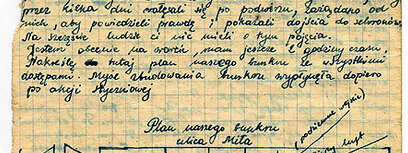 przez kilka dni znęcali się po podwórzu. Żądano od
nich, aby powiedzieli prawdę i pokazali dojścia do schronów.
Na szczęście ludzie ci nie mieli o tym pojęcia.
Jestem obecnie na warcie, mam jeszcze 2 godziny czasu.
Nakreślę tutaj plan naszego bunkru ze wszystkimi
dostępami. Myśl zbudowania bunkru wypłynęła dopiero
po akcji styczniowej
Plan naszego bunkru
ulica Miła